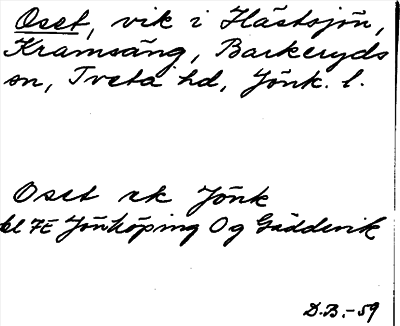 Oset, vik i Hästsjön,
Kramsäng, Barkeryds
sn, Tveta hd, Jönk. l.
Oset ek Jönk
bl 7E Jönköping Og Gäddevik
D.B.-59